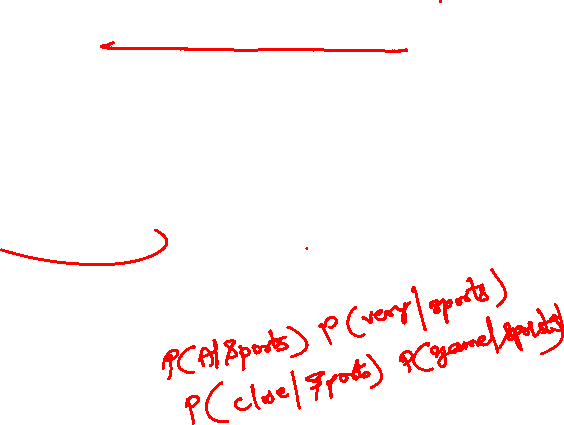 P(A|Sports) P(very|sports)
P(close|Sports) P(game|sports)